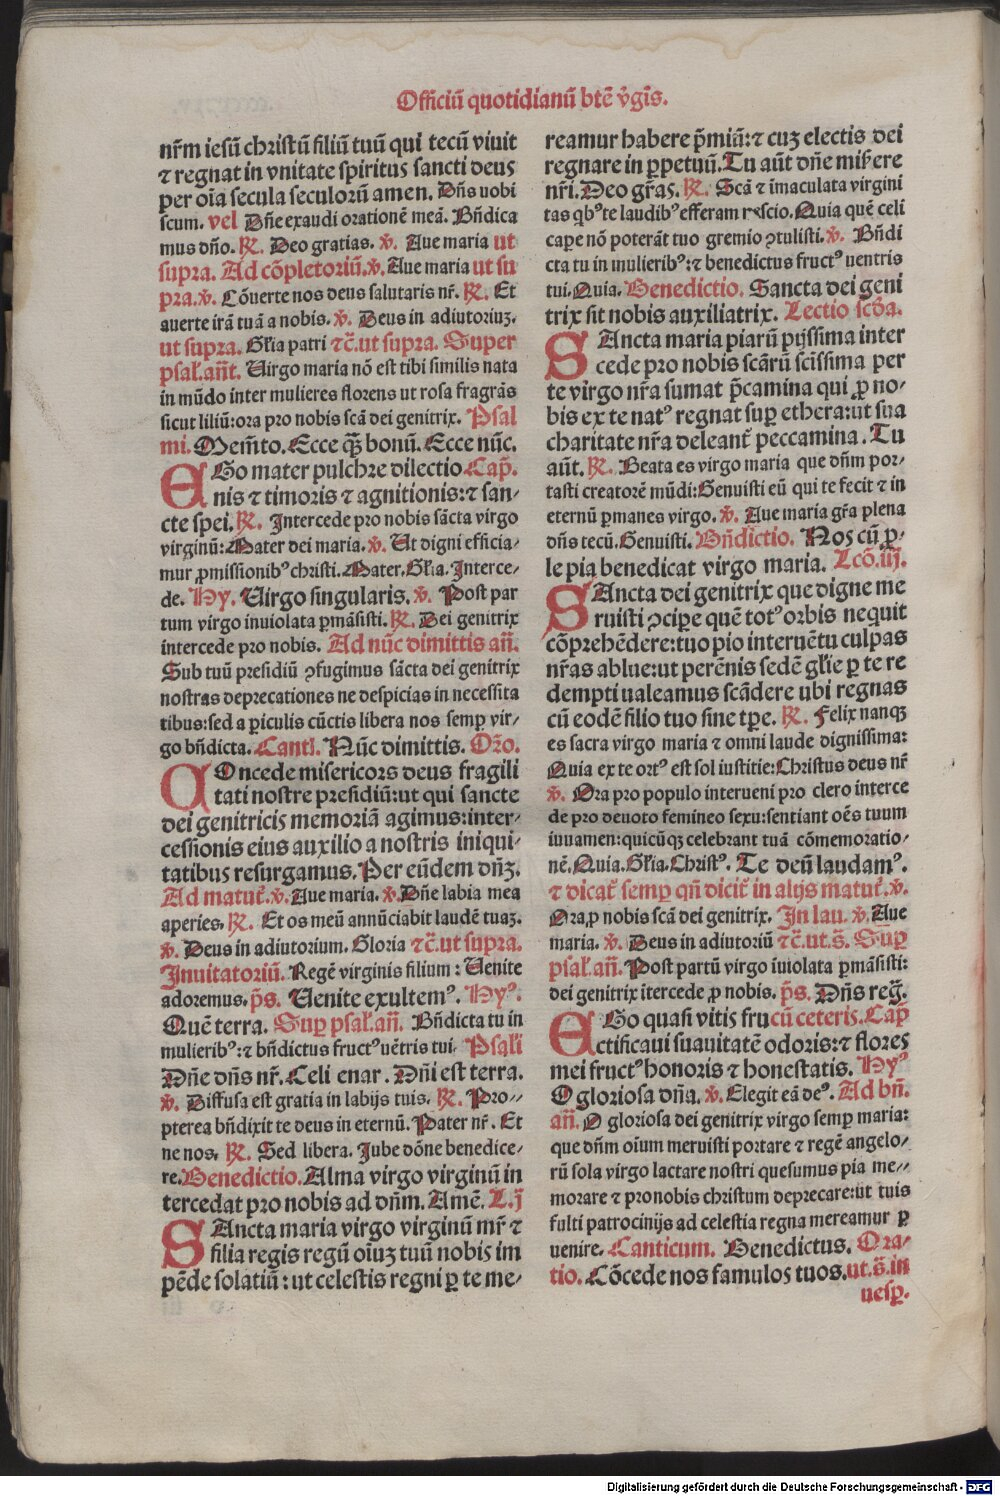 Officiū quotidianū btē v̄gis.
nr̄m iesū christū filiū tuū qui tecū viuit
⁊ regnat in vnitate spiritus sancti deus
per oīa secula seculorū amen. Dn̄s uobi
scum. vel Dn̄e exaudi orationē meā. Bn̄dica
mus dn̄o. ℟. Deo gratias. ℣. Aue maria ut
supra. Ad cōpletoriū. ℣. Aue maria ut su
pra. ℣. Cōuerte nos deus salutaris nr̄. ℟. Et
auerte irā tuā a nobis. ℣. Deus in adiutoriuꝫ.
ut supra. Gl̄ia patri ⁊c̄. ut supra. Super
psal̄. an̄t. Uirgo maria nō est tibi similis nata
in mūdo inter mulieres florens ut rosa fragrās
sicut liliū: ora pro nobis scā dei genitrix. Psal
mi. Mem̄to. Ecce q̄ꝫ bonū. Ecce nūc.
EGo mater pulchre dilectio Cap̄.
nis ⁊ timoris ⁊ agnitionis: ⁊ san-
cte spei. ℟. Intercede pro nobis sācta virgo
virginū: Mater dei maria. ℣. Ut digni efficia-
mur ꝓmissionibꝰ christi. Mater. Gl̄ia. Interce-
de. Hy. Uirgo singularis. ℣. Post par
tum virgo inuiolata ꝑmāsisti. ℟. Dei genitrix
intercede pro nobis. Ad nūc dimittis an̄.
Sub tuū presidiū ꝯfugimus sācta dei genitrix
nostras deprecationes ne despicias in necessita
tibus: sed a ꝑiculis cūctis libera nos semꝑ vir-
go bn̄dicta. Canti. Nūc dimittis. Or̄o.
COncede misericors deus fragili
tati nostre presidiū: ut qui sancte
dei genitricis memoriā agimus: inter-
cessionis eius auxilio a nostris iniqui-
tatibus resurgamus. Per eūdem dn̄ꝫ.
Ad matut̄. ℣. Aue maria. ℣. Dn̄e labia mea
aperies. ℟. Et os meū annūciabit laudē tuaꝫ.
℣. Deus in adiutorium. Gloria ⁊c̄. ut supra.
Inuitatoriū. Regē virginis filium: Uenite
adoremus. p̄s. Uenite exultemꝰ. Hyꝰ.
Quē terra. Suꝑ psal̄. an̄. Bn̄dicta tu in
mulieribꝰ: ⁊ bn̄dictus fructꝰ uētris tui. Psal̄i
Dn̄e dn̄s nr̄. Celi enar. Dn̄i est terra.
℣. Diffusa est gratia in labijs tuis. ℟. Pro-
pterea bn̄dixit te deus in eternū. Pater nr̄. Et
ne nos. ℟. Sed libera. Jube dōne benedice-
re. Benedictio. Alma virgo virginū in
tercedat pro nobis ad dn̄m. Amē. L. j
SAncta maria virgo virginū mr̄ ⁊
filia regis regū oīuꝫ tuū nobis im
pēde solatiū: ut celestis regni ꝑ te me-
reamur habere p̄miū: ⁊ cuꝫ electis dei
regnare in ꝑpetuū. Tu aūt dn̄e mis̄ere
nr̄i. Deo gr̄as. ℟. Scā ⁊ īmaculata virgini
tas qbꝰ te laudibꝰ efferam nescio. Quia quē celi
caꝑe nō poterāt tuo gremio ꝯtulisti. ℣. Bn̄di
cta tu in mulieribꝰ: ⁊ benedictus fructꝰ uentris
tui. Quia. Benedictio. Sancta dei geni
trix sit nobis auxiliatrix. Lectio scd̄a.
SAncta maria piarū pijssima inter
cede pro nobis scārū scissima per
te virgo nr̄a sumat p̄camina qui ꝓ no-
bis ex te natꝰ regnat suꝑ ethera: ut sua
charitate nr̄a deleant̄ peccamina. Tu
aūt. ℟. Beata es virgo maria que dn̄m por-
tasti creatorē mūdi: Genuisti eū qui te fecit ⁊ in
eternū ꝑmanes virgo. ℣. Aue maria gr̄a plena
dn̄s tecū. Genuisti. Bn̄dictio. Nos cū ꝓ-
le pia benedicat virgo maria. Lcō. iij.
SAncta dei genitrix que digne me
ruisti ꝯcipe quē totꝰ orbis nequit
cōprehēdere: tuo pio interuētu culpas
nr̄as ablue: ut perēnis sedē gl̄ie ꝑ te re
dempti ualeamus scādere ubi regnas
cū eodē filio tuo sine tp̄e. ℟. Felix nanqꝫ
es sacra virgo maria ⁊ omni laude dignissima:
Quia ex te ortꝰ est sol iustitie: Christus deus nr̄
℣. Ora pro populo interueni pro clero interce
de pro deuoto femineo sexu: sentiant oēs tuum
iuuamen: quicūqꝫ celebrant tuā cōmemoratio-
nē. Quia. Gl̄ia. Christꝰ. Te deū laudamꝰ.
⁊ dicat̄ semꝑ qn̄ dicit̄ in alijs matut̄. ℣.
Ora ꝓ nobis scā dei genitrix. In lau. ℣. Aue
maria. ℣. Deus in adiutoriū ⁊c̄. ut. s̄. Suꝑ
psal̄. an̄. Post partū virgo īuiolata ꝑmāsisti:
dei genitrix itercede ꝓ nobis. p̄s. Dn̄s reḡ.
EGo quasi vitis fru cū ceteris. Cap̄
ctificaui suauitatē odoris: ⁊ flores
mei fructꝰ honoris ⁊ honestatis. Hyꝰ
O gloriosa dn̄a. ℣. Elegit eā deꝰ. Ad bn̄.
an̄. O gloriosa dei genitrix virgo semꝑ maria:
que dn̄m oīum meruisti portare ⁊ regē angelo-
rū sola virgo lactare nostri quesumus pia me-
morare ⁊ pro nobis christum deprecare: ut tuis
fulti patrocinijs ad celestia regna mereamur ꝑ
uenire. Canticum. Benedictus. Ora-
tio. Cōcede nos famulos tuos. ut. s̄. in
uesꝑ.
Digitalisierung gefördert durch die Deutsche Forschungsgemeinschaft - DFG